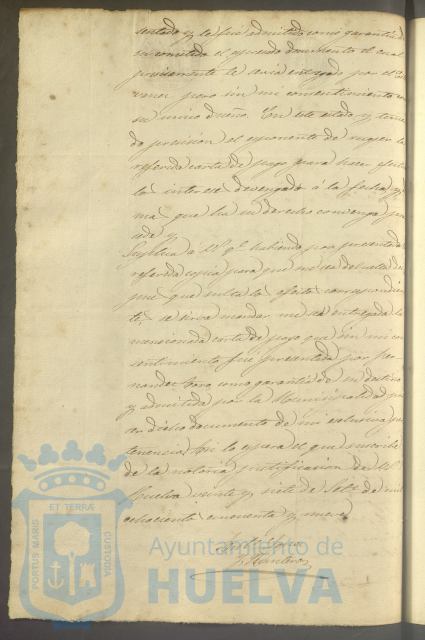 sentado y le fué admitido como garantia de
su cometido el espresado documento el cual
previamente le seria entregado por el
pero sin mi consentimiento
su unico dueño. En este estado y
do precision el esponente de recoger la
referida carta de pago para hacer efectivo
la interese devengado á la fecha y
mas que ha su derecho convenga
Suplica á V. S. qe. habiendo por presentada
referida copia para que
que surta los efectos correspondien
tes, se sirva mandar me sea entregada la
mencionada carta de pago que sin mi con
sentimiento fué presentada por
nandez como garantia de su destino
y admitida por la Municipalidad
dicho documento de mi esclusiva per
tenencia. Asi lo espera el que suscribe
de la notoria justificacion de
Huelva veinte y siete de Setbre. de mil
ochociento cincuenta y nueve
PORTUS MARIS ET TERRÆ CUSTODIA
Ayuntamiento de
HUELVA